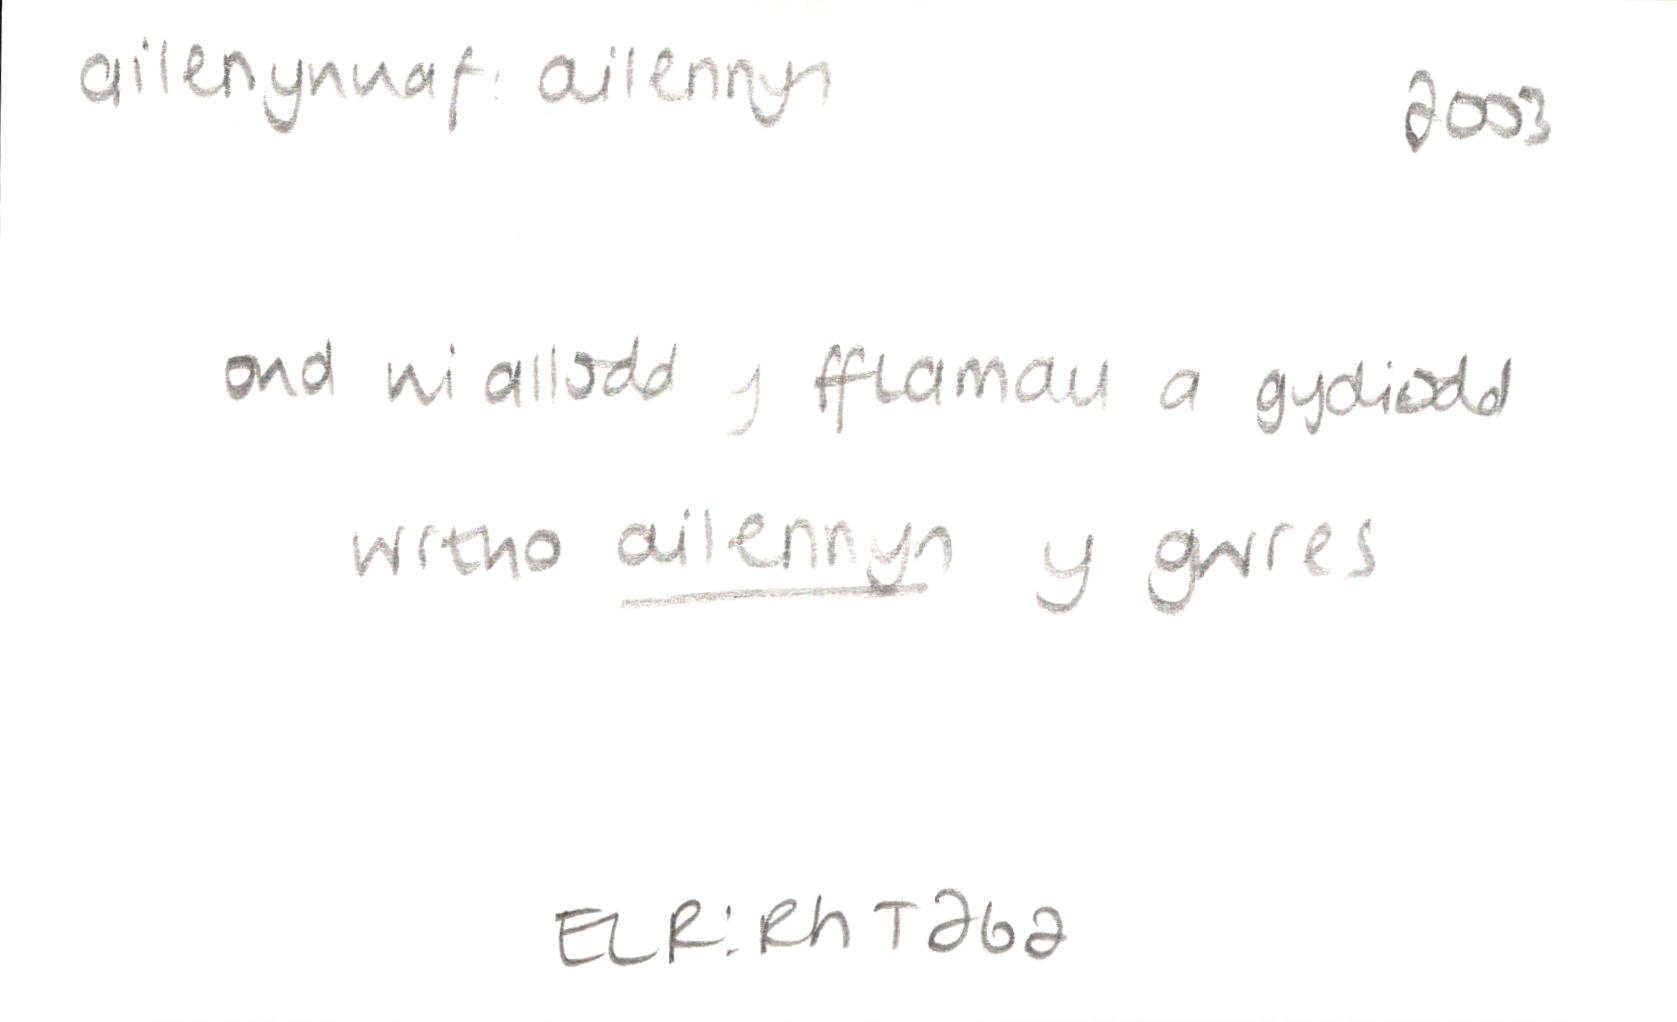 ailenynnaf: ailennyn 2003
ond ni allodd y fflamau a gydiodd
wrtho ailennyn y gwres
ELR: RhT 262